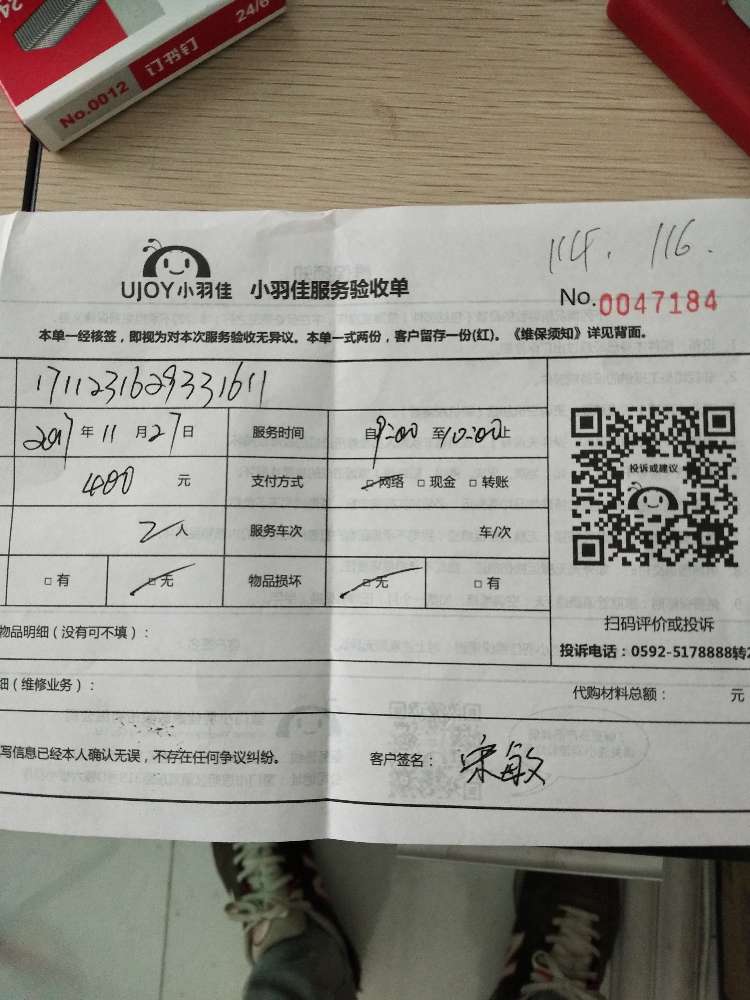 24/6
No.0012 订书钉
114. 116.
UJOY小羽佳 小羽佳服务验收单
No.0047184
本单一经核签，即视为对本次服务验收无异议。本单一式两份，客户留存一份(红)。《维保须知》详见背面。
1711231629331611
2017年11月27日 服务时间 自9:00至10:00止
400元 支付方式 □网络 □现金 □转账
投诉或建议
2人 服务车次 车/次
□有 □无 物品损坏 □无 □有
扫码评价或投诉
物品明细（没有可不填）：
投诉电话：0592-5178888转2
细（维修业务）： 代购材料总额： 元
写信息已经本人确认无误，不存在任何争议纠纷。 客户签名：宋敏